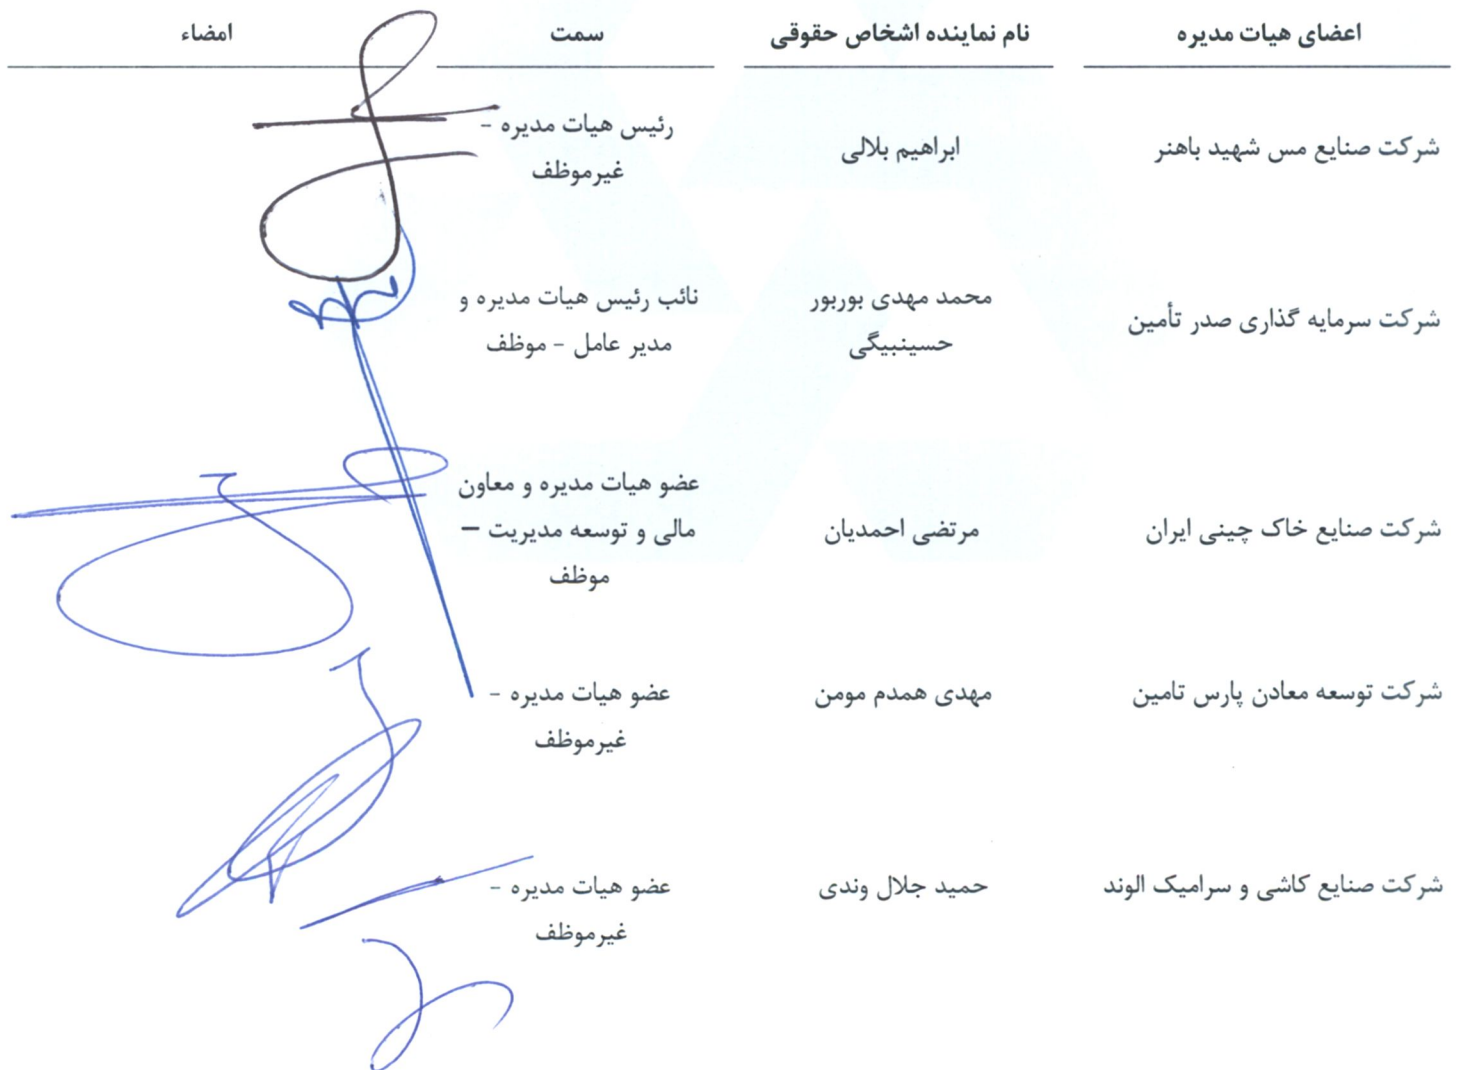 اعضای هیات مدیره	نام نماینده اشخاص حقوقی	سمت	امضاء
شرکت صنایع مس شهید باهنر	ابراهیم بلالی	رئیس هیات مدیره -
غیرموظف
شرکت سرمایه گذاری صدر تأمین	محمد مهدی بوربور	نائب رئیس هیات مدیره و
حسینبیگی	مدیر عامل - موظف
عضو هیات مدیره و معاون
شرکت صنایع خاک چینی ایران	مرتضی احمدیان	مالی و توسعه مدیریت –
موظف
شرکت توسعه معادن پارس تامین	مهدی همدم مومن	عضو هیات مدیره -
غیرموظف
شرکت صنایع کاشی و سرامیک الوند	حمید جلال وندی	عضو هیات مدیره -
غیرموظف